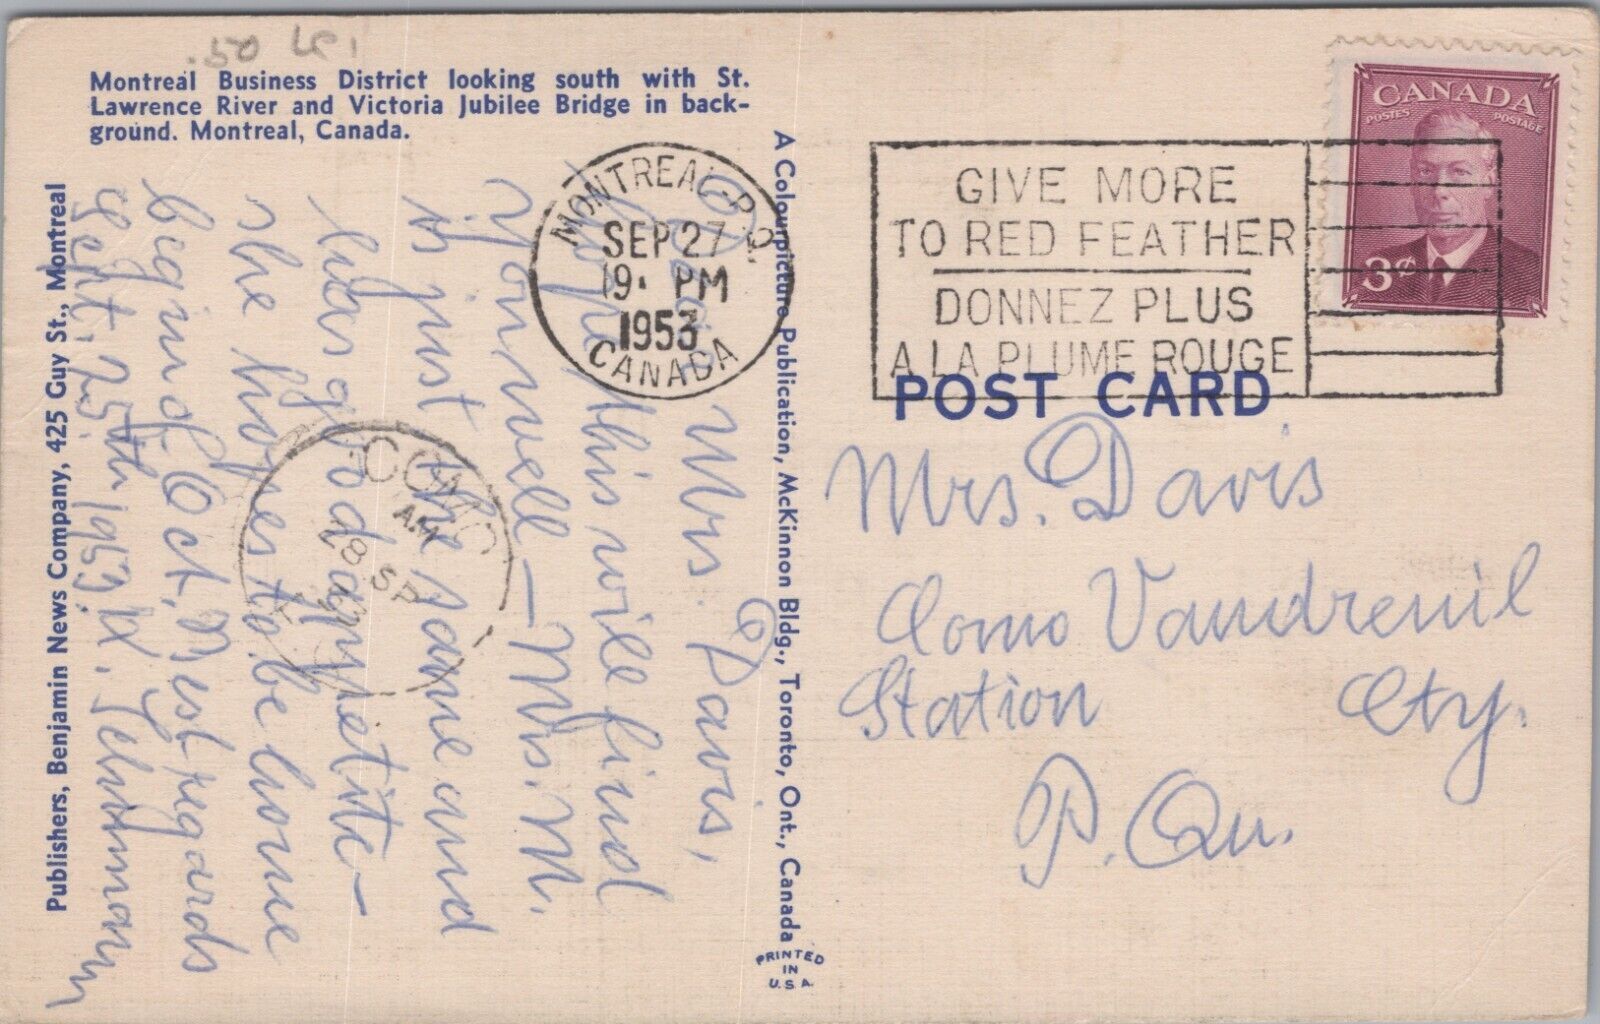 Montreal Business District looking south with St.
Lawrence River and Victoria Jubilee Bridge in back-
ground. Montreal, Canada.
Publishers, Benjamin News Company, 425 Guy St., Montreal
Dear Mrs. Davis,
Hope this will find
you well - Mrs. M.
is just the same and
has good appetite -
she hopes to be home
begin of Oct, Best regards
Sept. 25th 1953
MONTREAL-P.Q.
SEP 27
19 PM
1953
CANADA
COMO
AM
28 SP
53
A Colourpicture Publication, McKinnon Bldg., Toronto, Ont., Canada
PRINTED
IN
U.S.A.
GIVE MORE
TO RED FEATHER
DONNEZ PLUS
A LA PLUME ROUGE
CANADA
POSTES POSTAGE
3¢
POST CARD
Mrs. Davis
Como Vaudreuil
Station Cty.
P. Qu.